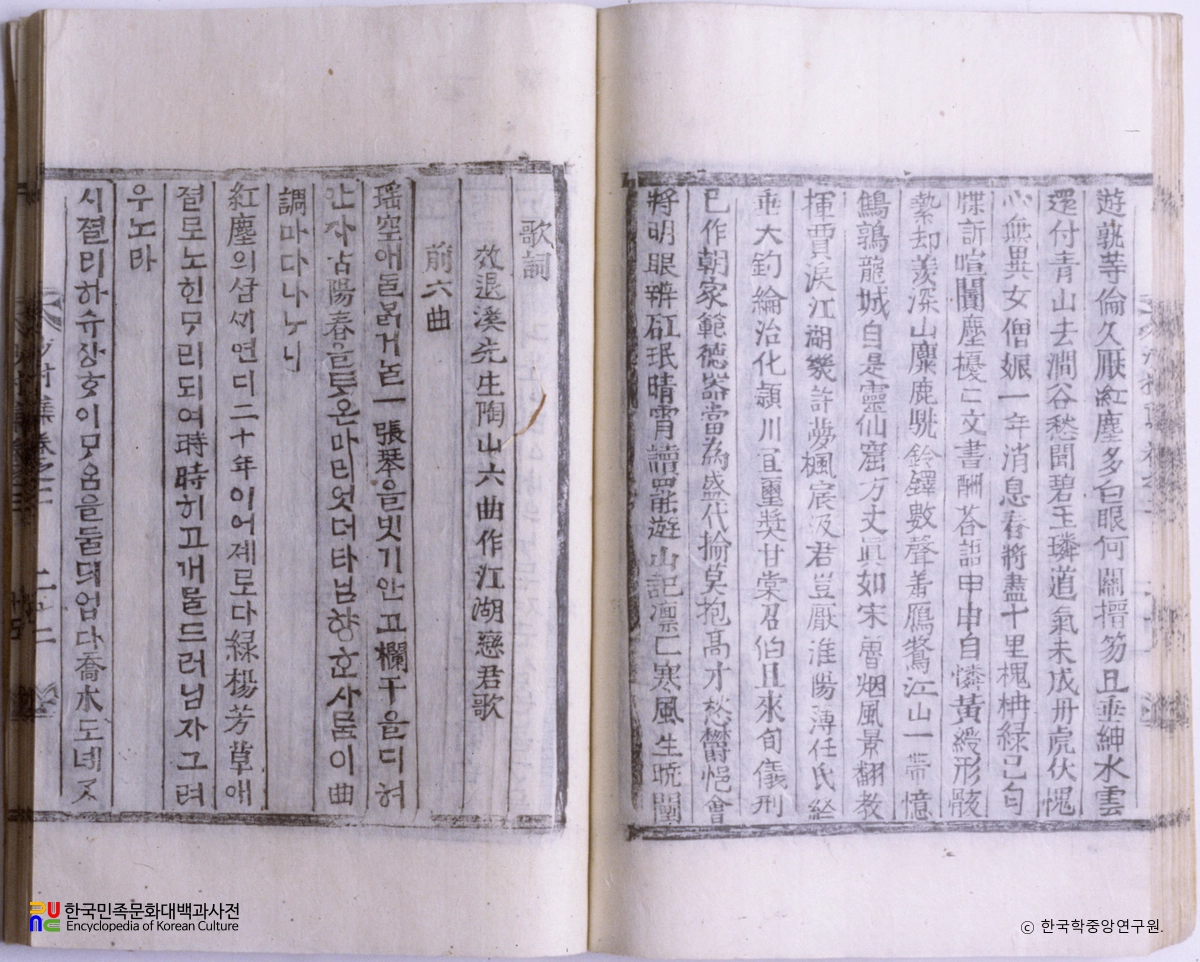 遊孰等倫久厭紅塵多白眼何關搢笏且垂紳水雲
還付青山去澗谷愁聞碧玉璘道氣未成丹虎伏愧
心無異女僧娠一年消息春將盡十里槐柟綠已勻
牒訴喧闐塵擾〻文書酬答語申申自憐黃綬形骸
縶却羨深山麋鹿駪鈴鐸數聲着鴈鶩江山一帶憶
鷦鷯龍城自是靈仙窟方丈眞如宋層烟風景翻教
揮賈淚江湖幾許夢楓宸汲君豈厭淮陽薄任氏終
垂大鈞綸治化潁川宜璽奬甘棠召伯且來旬儀刑
已作朝家範德器當為盛代掄莫抱高才愁鬱悒會
將明眼辨砥珉晴霄讀罷遊山記凛〻寒風生晩闉
歌詞
效退溪先生陶山六曲作江湖戀君歌
前六曲
瑤空애ᄃᆞᆯᄇᆞᆰ거ᄂᆞᆯ一張琴을빗기안고欄干을디혀
안자古陽春을ᄐᆞ온마리엇더타님향ᄒᆞᆫ사ᄅᆞᆷ이曲
調마다나ᄂᆞ니
紅塵의ᄉᆞᆷᄭᆡ연디二十年이어제로다綠楊芳草애
졀로노힌ᄆᆞ리되여時時히고개ᄅᆞᆯ드러님자그려
우노라
시졀리하슈상ᄒᆞ이ᄆᆞᄋᆞᆷ을둘ᄃᆡ업다喬木도녜ᄀᆞᆺ
한국민족문화대백과사전
Encyclopedia of Korean Culture
ⓒ 한국학중앙연구원.